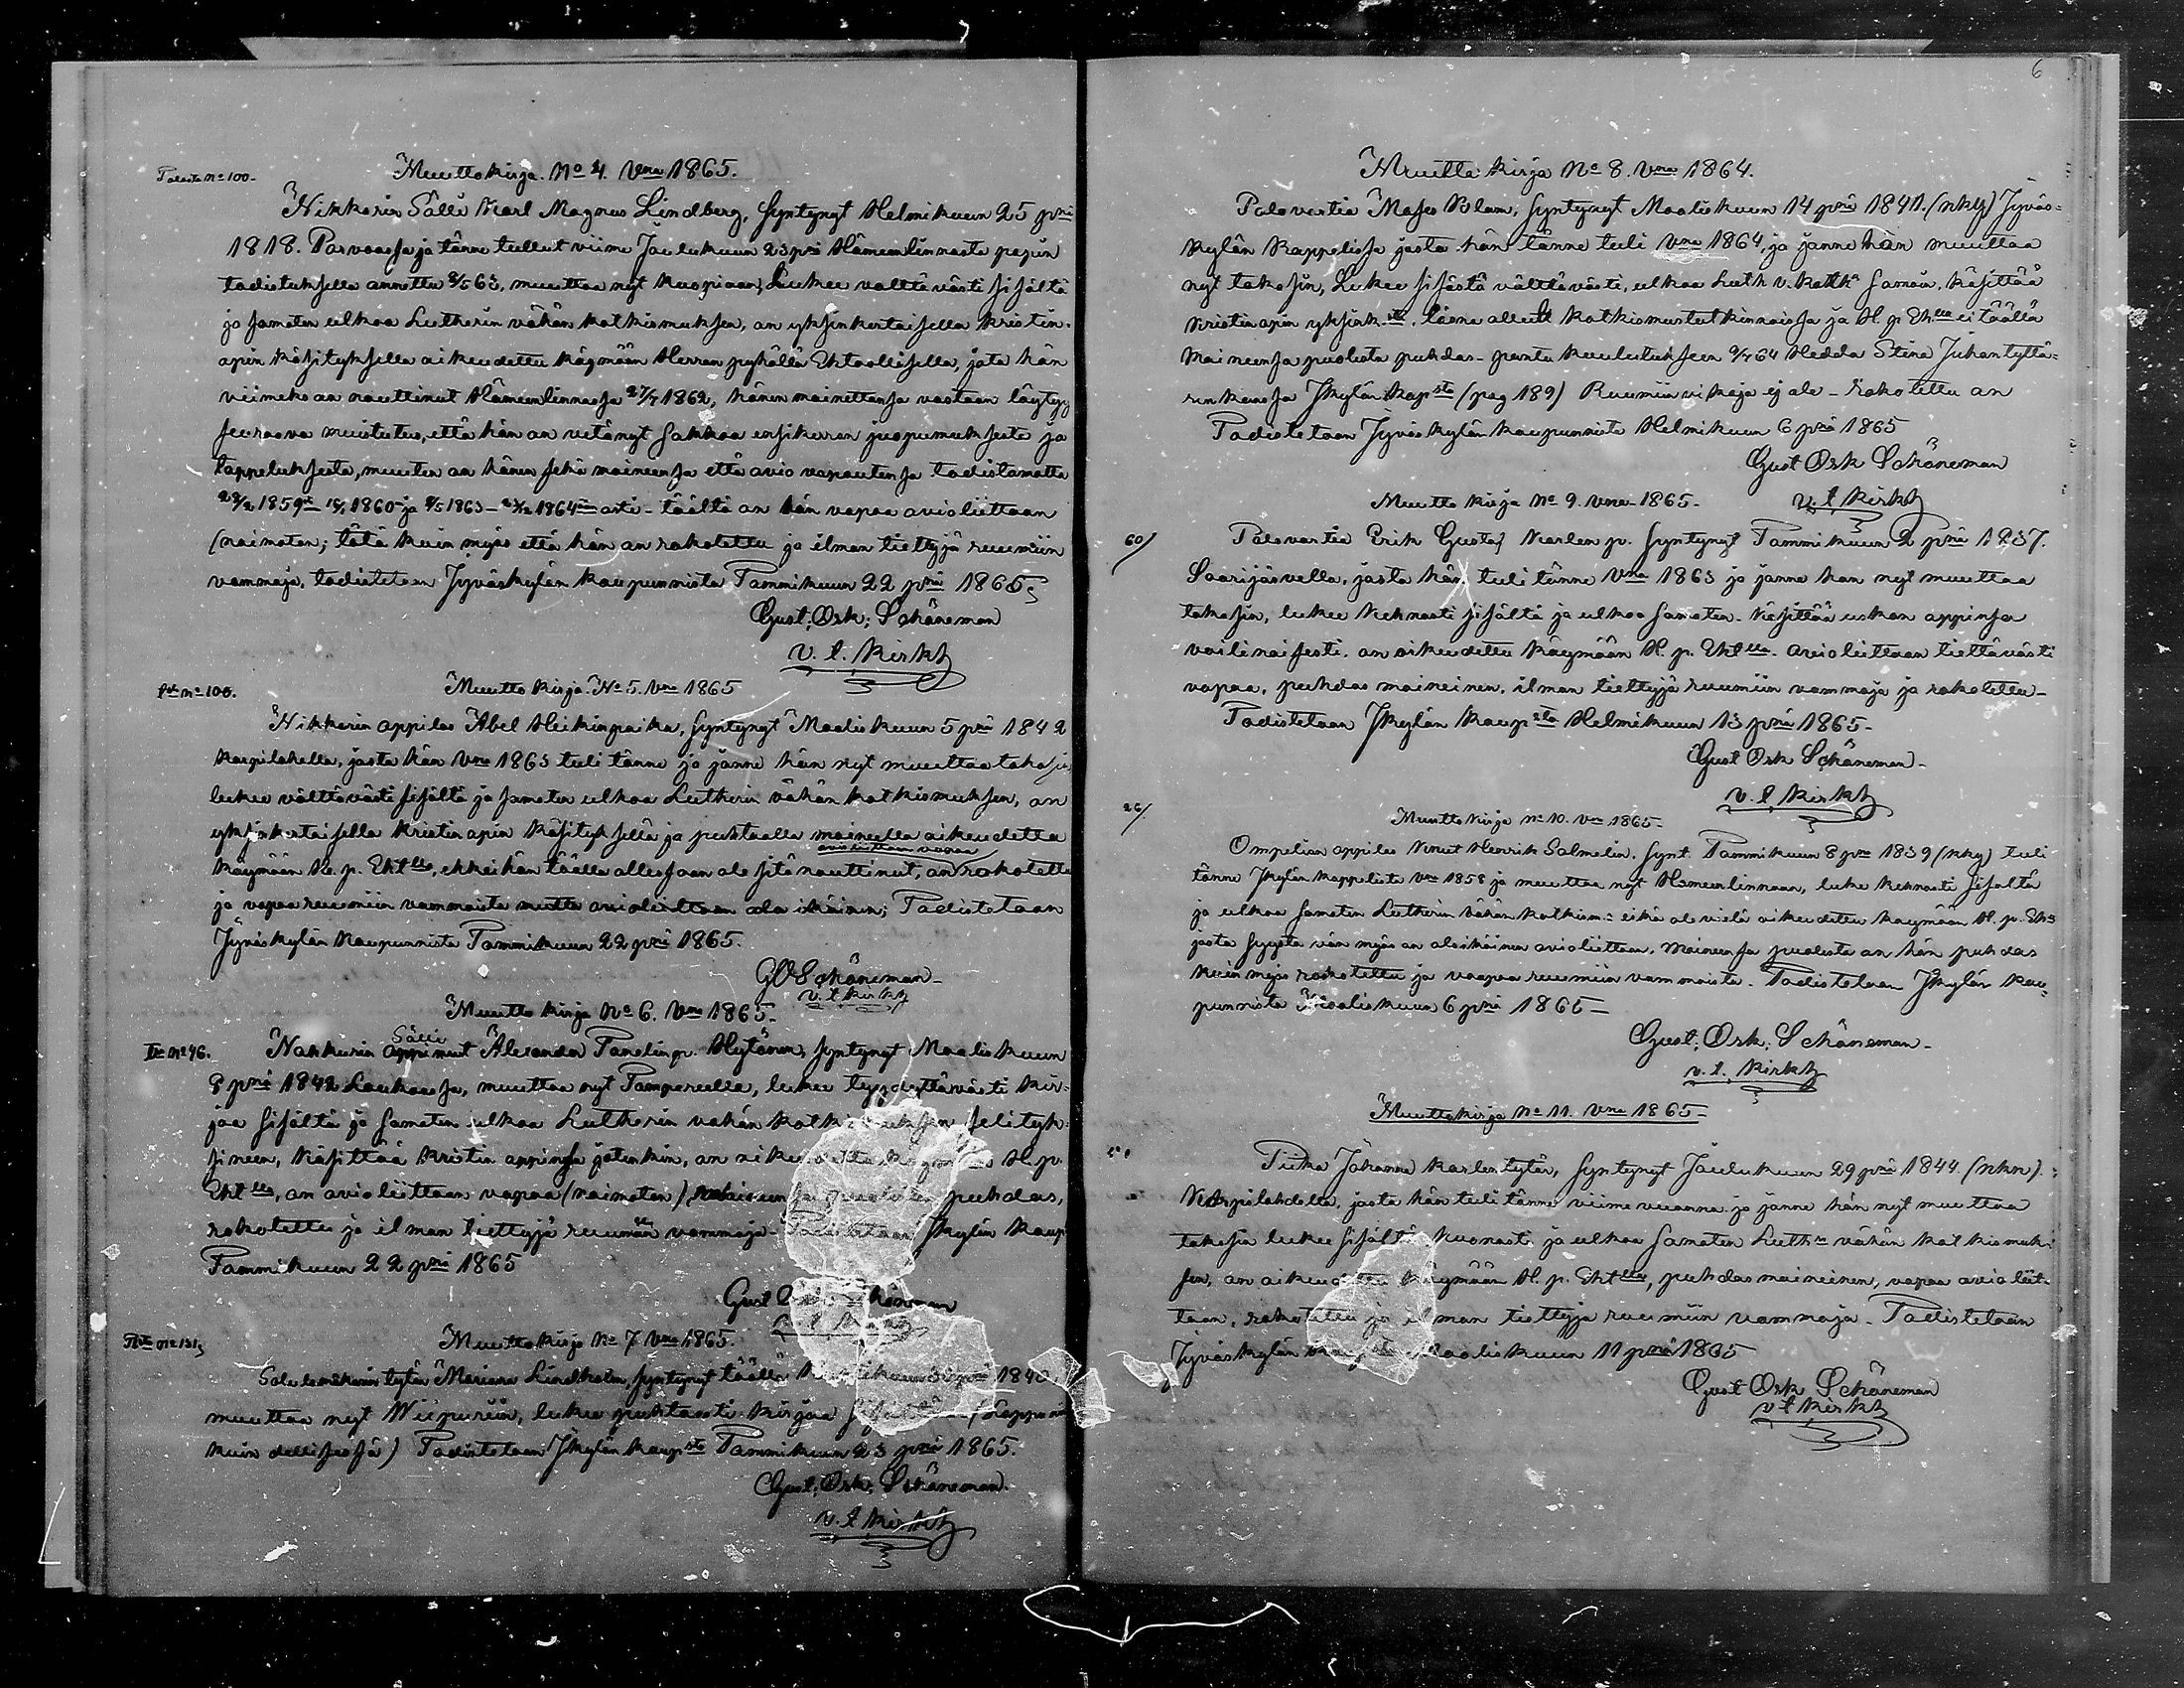 Muuttokirja. No 4. Vna 1865.
Talosta No 100.
Nikkarin Sälli Karl Magnus Lindberg, syntynyt Helmikuun 25 pnä
1818. Porvoossa ja tänne tullut viime Joulukuun 23 pnä Hämeenlinnasta papin
todistuksella annettu 8/5 63, muuttaa nyt Kuopioon, Lukee välttävästi sisältä
ja samaten ulkoa Lutherin vähän katkismuksen, on yksinkertaisella kristin-
opin käsityksellä oikeudettu käymään Herran pyhällä Ehtoollisella, jota hän
viimeksi on nauttinut Hämeenlinnassa 27/7 1862, hänen mainettansa vastaan löytyy
seuraava muistutus, että hän on vetänyt sakkoa ensikerran juopumuksesta ja
tappeluksesta, muuten on hänen sekä maineensa että avio vapautensa todistamatta
1860 ja 1863 - 1864 asti - täältä on hän vapaa avioliittoon
(naimaton; tätä kuin myös että hän on rokotettu ja ilman tiettyjä ruumiin
vammoja, todistetaan Jyväskylän kaupunnista Tammikuun 22 pnä 1865
Gust. Osk. Schöneman
v. t. kirkh
No 100.
Muuttokirja. No 5. Vna 1865
Nikkarin oppilas Abel Heikinpoika, syntynyt Maaliskuun 5 pnä 1842
Korpilahella, josta hän Vna 1863 tuli tänne ja jänne hän nyt muuttaa takasin
lukee välttävästi sisältä ja samaten ulkoa Lutherin vähän katkismuksen, on
yksinkertaisella kristin opin käsityksellä ja puhtaalla maineella oikeudettu
avioliittoon vapaa
käymään H. p. Ehtlla, ehkei hän täällä ollessaan ole sitä nauttinut, on rokotettu
ja vapaa ruumiin vammoista mutta avioliittoon ala ikäinen; Todistetaan
Jyväskylän Kaupunnista Tammikuun 22 pnä 1865.
GOSchöneman
v. t. kirkh
Muutto kirja No 6. Vna 1865.
No 46.
Sälli
Nahkurin Alexander Tanelin p. Hytönen, syntynyt Maaliskuun
8 pnä 1842 Laukaassa, muuttaa nyt Tampereelle, lukee tyydyttävästi kir-
jaa sisältä ja samaten ulkoa Lutherin vähän selityk-
sineen, käsittää kristin oppinsa jotenkin, on H. p.
Ehtlla, on avioliittoon vapaa (naimaton) puhdas,
rokotettu ja ilman tiettyjä ruumiin vammoja. Todistetaan Jkylän kaup
Tammikuun 22 pnä 1865
Gust Schöneman
Muuttokirja No 7. Vna 1865.
No 131,
tytär Mariana Lindholm, syntynyt täällä 1840
muuttaa nyt Wiipuriin, lukee puhtaasti kirjaa
kuin edellisessä) Todistetaan Jkylän kaupsta Tammikuun 23 pnä 1865.
Gust. Osk. Schöneman.
v. t. kirkh
6
Muutto kirja No 8. Vna 1864.
Palovartia Blom, syntynyt Maaliskuun 14 pnä 1841. Jyväs-
kylän Kappelissa josta hän tänne tuli Vna 1864, ja jänne hän muuttaa
nyt takasin, Lukee sisästä välttävästi, ulkoa Luth v. katk. samoin, käsittää
kristin opin yksink., läsnä ollut katkismustutkinnoissa ja H. p. Ehlla ei täällä
Maineensa puolesta puhdas - pantu kuulutukseen 64 Hedda Stina Juhantyttä-
ren kanssa Jkylän kapsta (pag 189) Ruumiin vikoja ej ole - rokotettu on
Todistetaan Jyväskylän kaupunnista Helmikuun 6 pnä 1865
Gust Osk Schöneman
v. t. kirkh
Muutto kirja No 9. Vna 1865.
60/
Palovartia Erik Gustaf Karlen p. syntynyt Tammikuun 2 pnä 1837.
Saarijärvella, josta hän tuli tänne Vna 1863 ja jänne hän nyt muuttaa
takasin, lukee kehnosti sisältä ja ulkoa samaten. Käsittää uskon oppinsa
vaillinaisesti. on oikeudettu käymään H. p. Ehtlla. avioliittoon tiettävästi
vapaa, puhdas maineinen, ilman tiettyjä ruumiin vammoja ja rokotettu -
Todistetaan Jkylän kaupsta Helmikuun 13 pnä 1865.
Gust Osk Schöneman.
v. t. kirkh
26/
Muuttokirja no 10. Vna 1865.
Ompelian oppilas Knut Henrik Salmelin. synt. Tammikuun 8 pnä 1839 tuli
tänne Jkylän kappelista Vna 1858 ja muuttaa nyt Hämeenlinnaan, lukee kehnosti sisältä
ja ulkoa samaten Lutherin vähän katkism: eikä ole vielä oikeudettu käymään H. p. Eht
josta syystä hän myös on alaikäinen avioliittoon. Maineensa puolesta on hän puhdas
kuin myös rokotettu ja vapaa ruumiin vammoista. Todistetaan Jkylän kau-
punnista Maaliskuun 6 pnä 1865
Gust. Osk. Schöneman.
v. t. kirkh
Muuttokirja No 11. Vna 1865
Piika Johanna Karlentytär, syntynyt Joulukuun 29 pnä 1844.
Korpilahdella, josta hän tuli tänne viime vuonna ja jänne hän nyt muuttaa
takasin lukee sisältä huonosti ja ulkoa samaten Luthn vähän katkismuk-
sen, on oikeudettu käymään H. p. Ehtlla, puhdas maineinen, vapaa avioliit-
toon, rokotettu ja ilman tiettyjä ruumiin vammoja. Todistetaan
Jyväskylän Maaliskuun 11 pnä 1865
Gust Osk Schöneman
v t kirkh